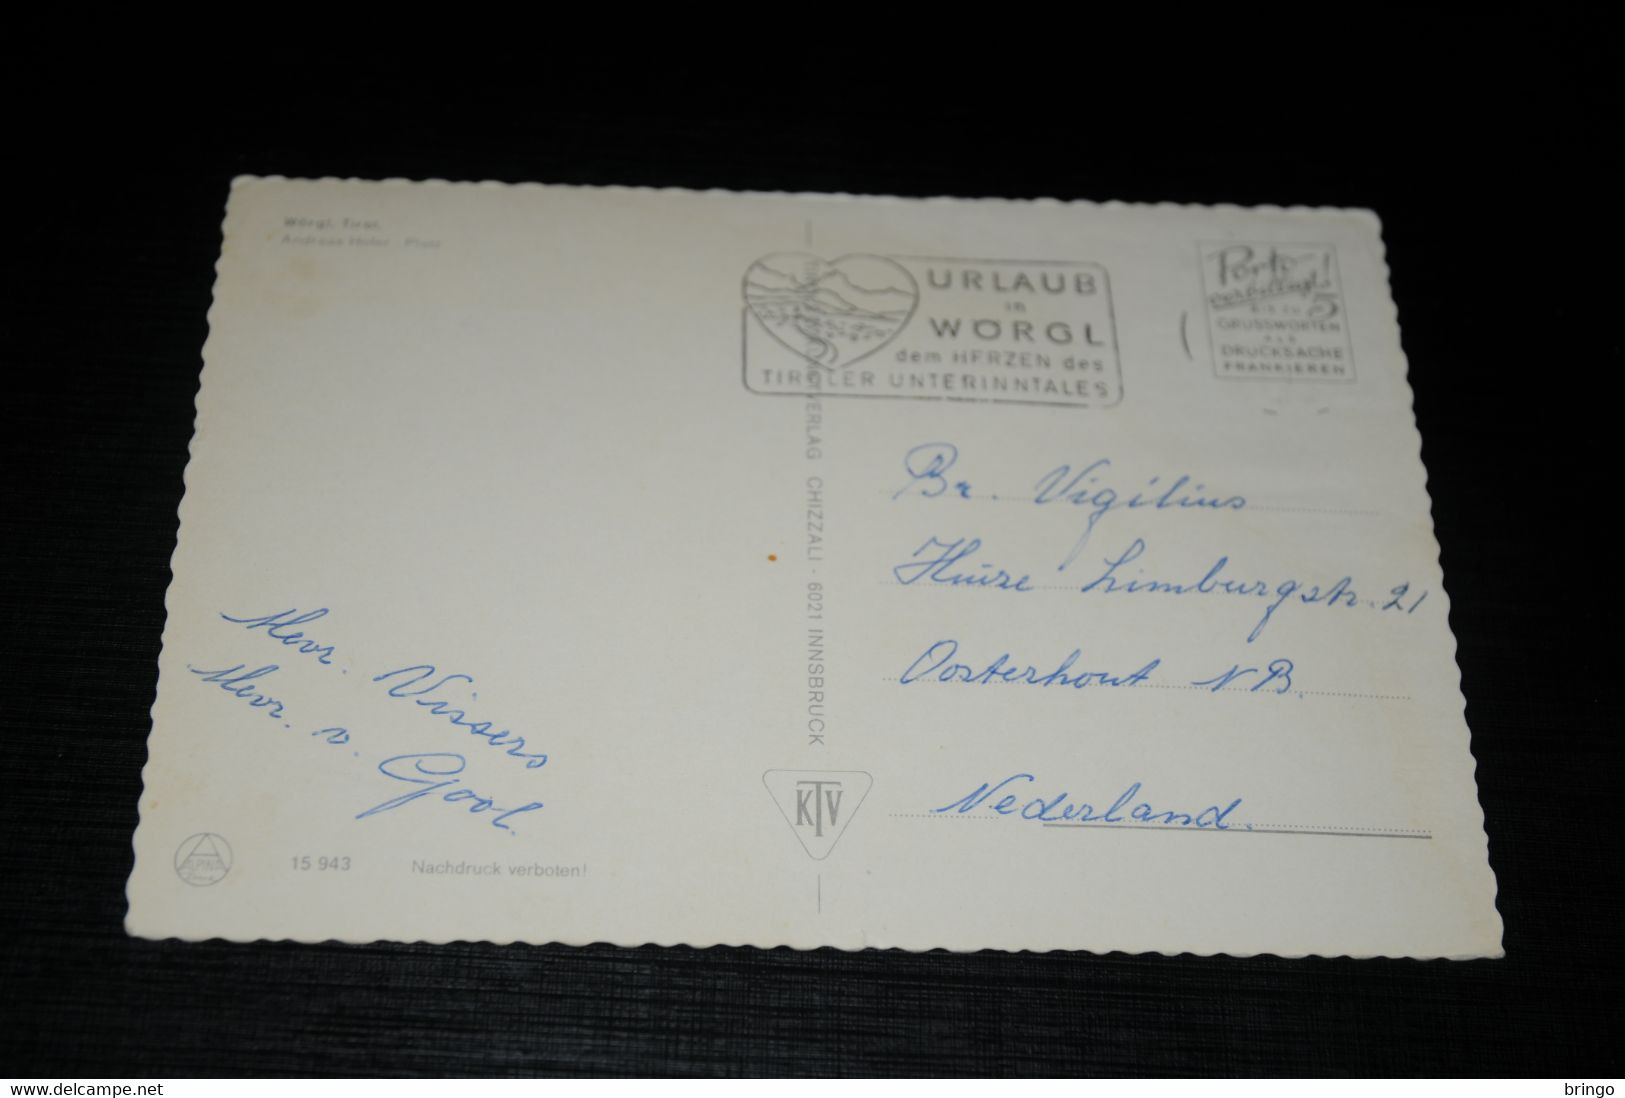 Wörgl, Tirol,
Andreas Hofer - Platz
URLAUB
in
WÖRGL
dem HERZEN des
TIROLER UNTERINNTALES
Porto
verbilligt!
BIS ZU 5
GRUSSWORTEN
ALS
DRUCKSACHE
FRANKIEREN
VERLAG CHIZZALI · 6021 INNSBRUCK
Br. Vigilius
Huize Limburgstr. 21
Oosterhout NB.
Nederland.
Mevr. Vissers
Mevr. v. Gool.
KTV
ALPINA
15 943 Nachdruck verboten!
www.delcampe.net
bringo